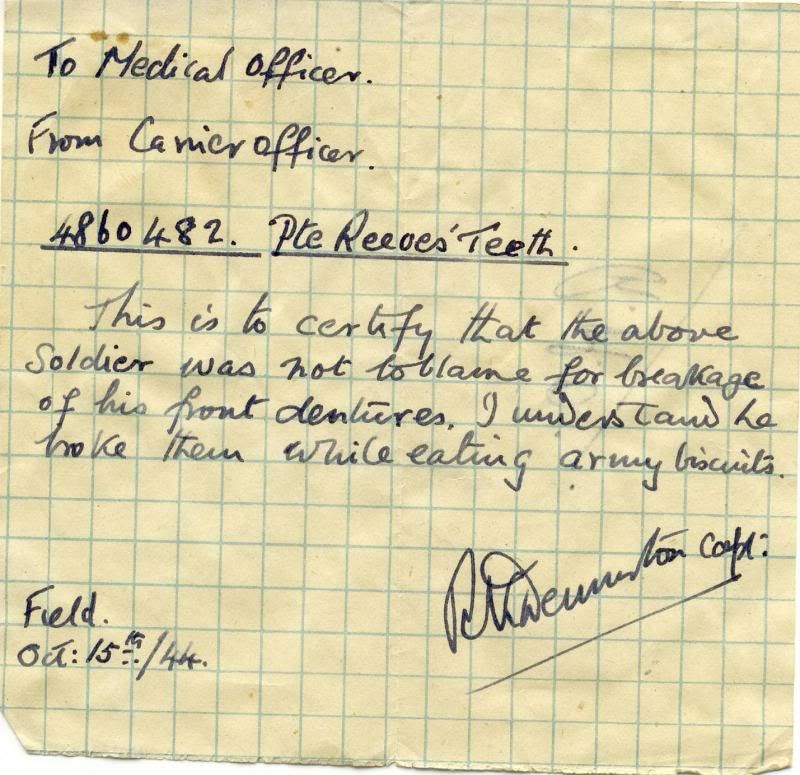 To Medical Officer.
From Carrier Officer.
4860482. Pte Reeves' Teeth.
This is to certify that the above
Soldier was not to blame for breakage
of his front dentures. I understand he
broke them while eating army biscuits.
Capt:
Field.
Oct: 15th/44.